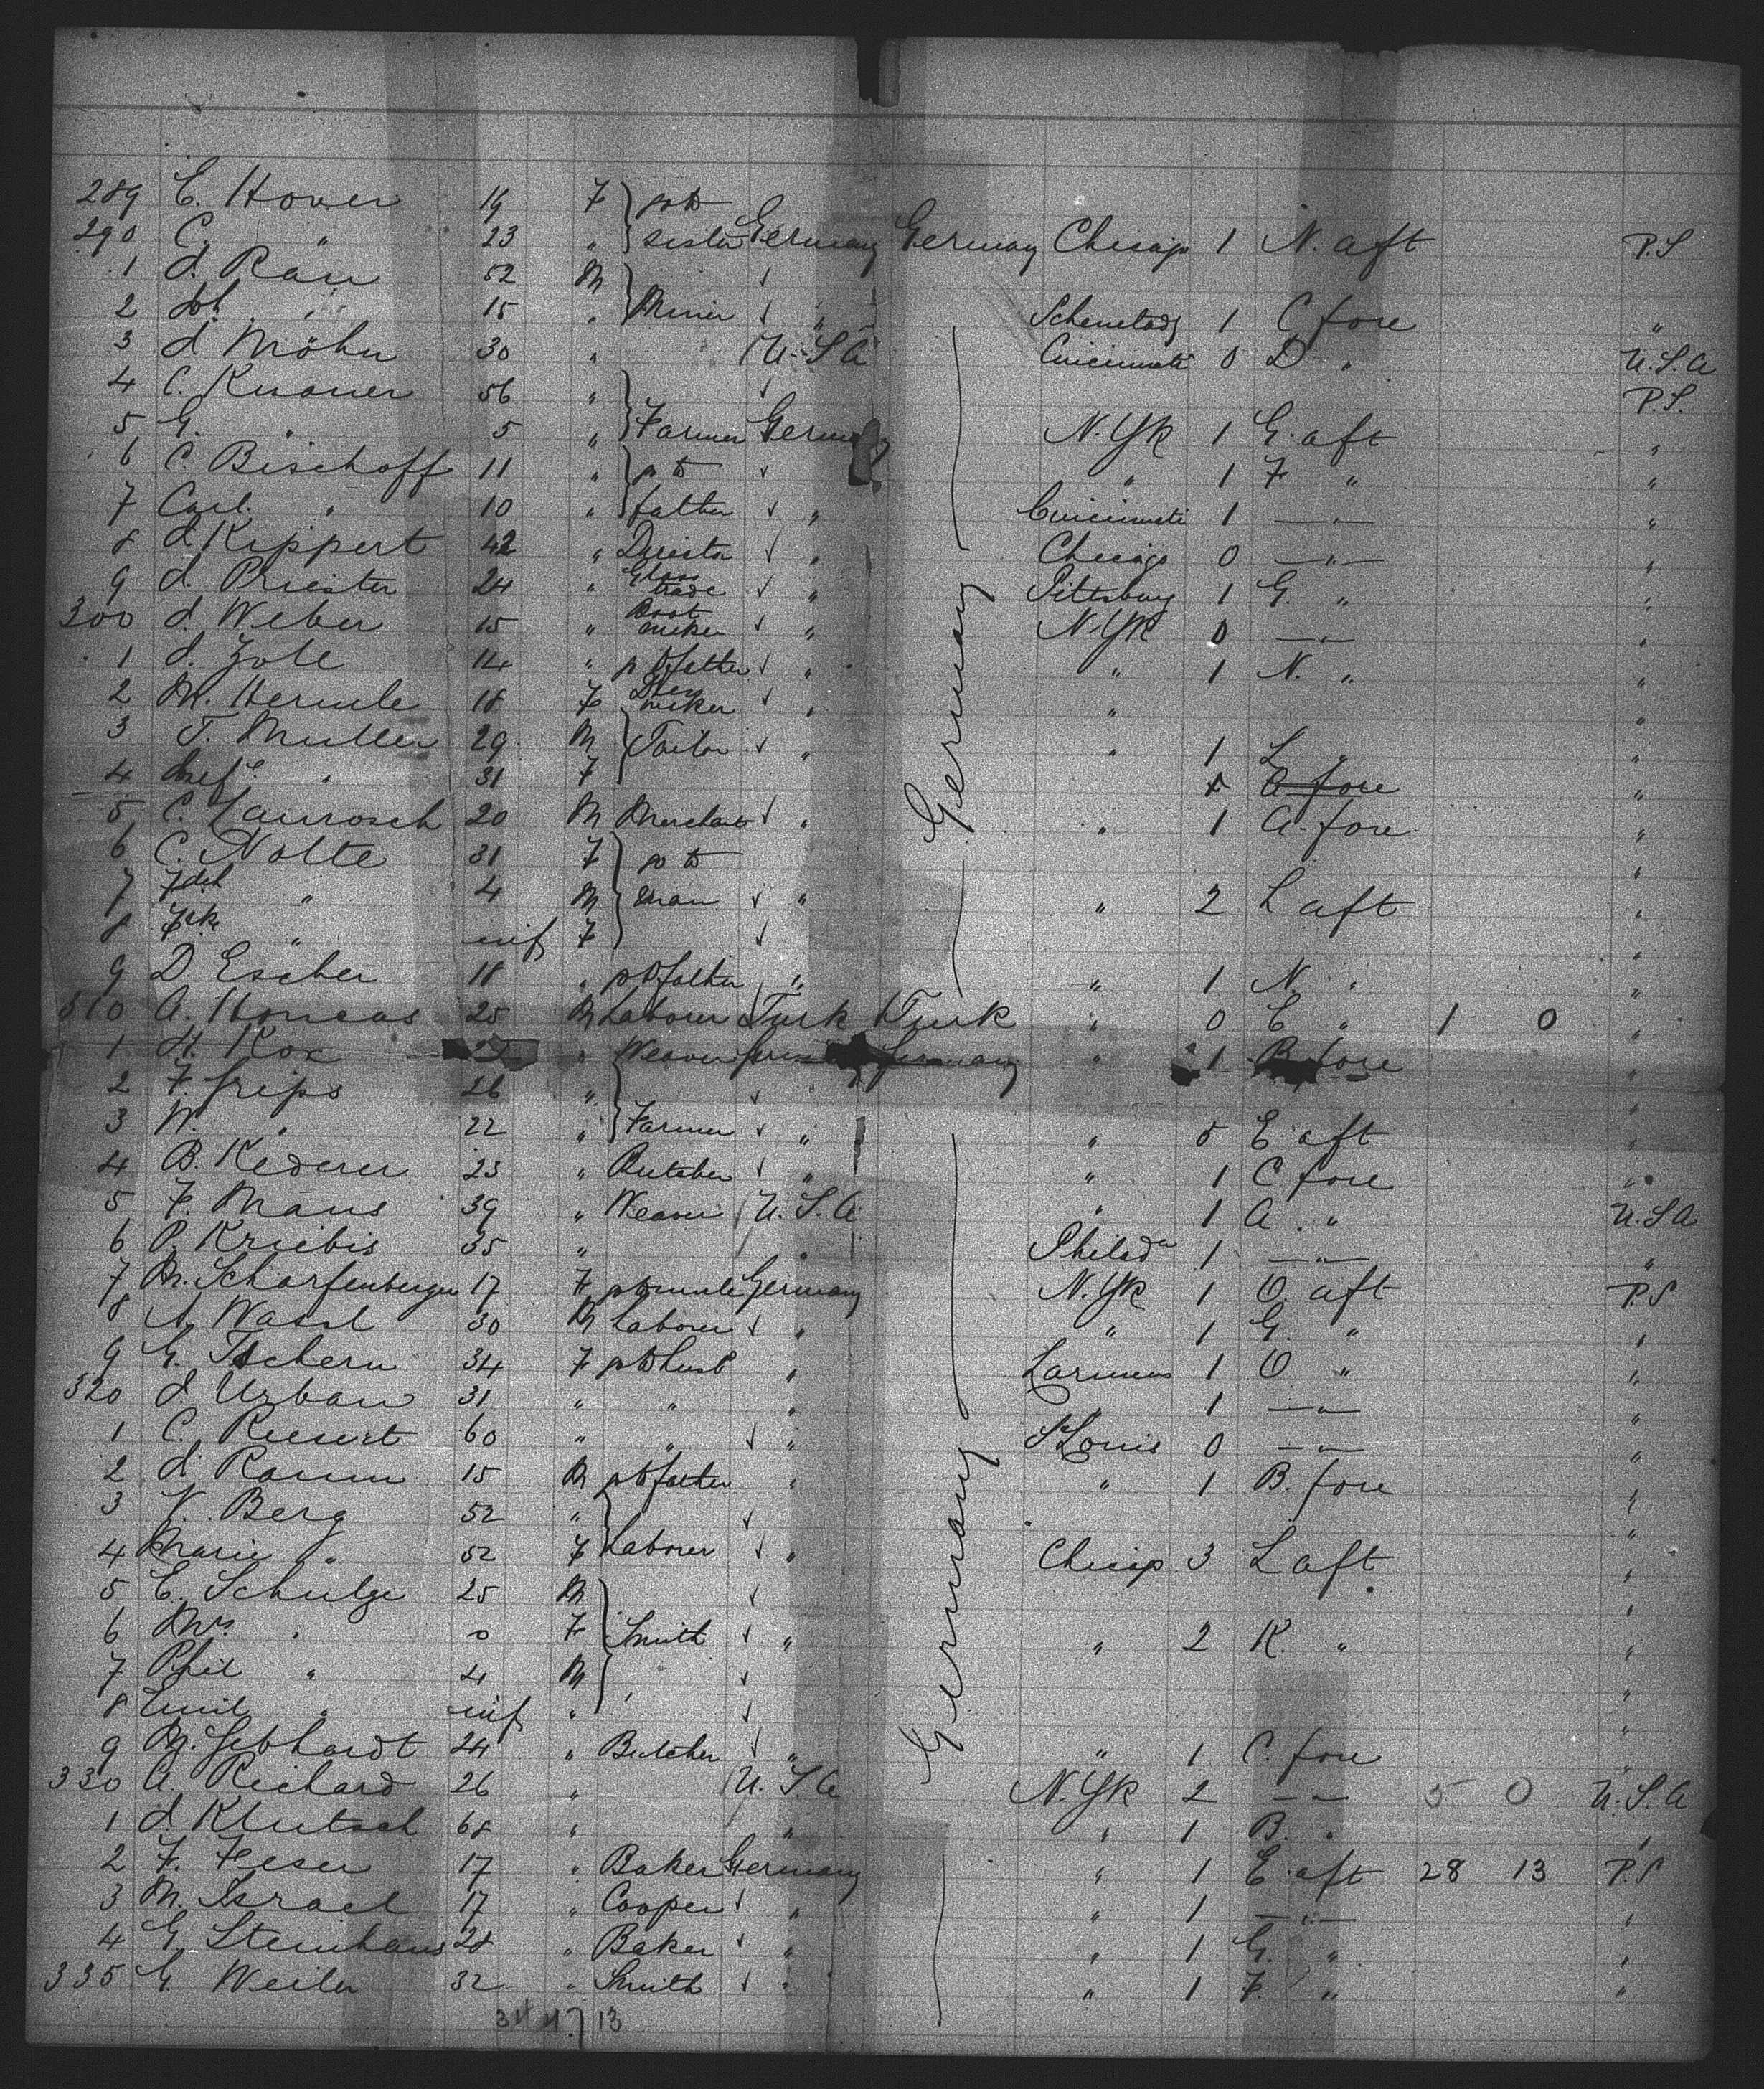 289 E. Hover 19 F } p to
290 C. " 23 " } sister Germany Germany Chicago 1 N. aft P.S
1 J. Rau 52 M }
2 Joh. " 15 " } Miner " Schenetady 1 C fore "
3 J. Möhn 30 " U.S.A Cincinnati 0 D " U.S.A
4 C. Knauer 56 " } P.S.
5 G. " 5 " } Farmer Germ N.Yk 1 G. aft "
6 C. Bischoff 11 " } p to " 1 F " "
7 Carl " 10 " } father " Cincinnati 1 — " — "
8 J. Kippert 42 " " Chicago 0 — " — "
9 J. Priester 24 " Glass trade " Pittsburg 1 G. " "
300 J. Weber 15 " Boot maker " N.Yk 0 — " — "
1 J. Zoll 14 " p to father " " 1 N. " "
2 M. Hermle 18 F maker " " "
3 T. Muller 29 M } Tailor " " 1 L " "
4 " 31 F } A fore "
5 C. Laurosch 20 M Merchant " " 1 A. fore "
6 C. Nolte 31 F } p to "
7 Fdch " 4 M } man " " 2 L aft "
8 " inf F } "
9 D. Escher 18 " p to father " " 1 N. " "
310 A. Honcas 25 M Laborer Turk Turk " 0 E " 1 0 "
1 H. Kox " Weaver Germany Germany " 1 B fore "
2 F. Grips 26 " } "
3 W. " 22 " } Farmer " " 0 E aft "
4 B. Kederer 23 " Butcher " " 1 C fore "
5 F. Mans 39 " Weaver U.S.A " 1 A. " U.S.A
6 P. Kriebis 35 " " Philada 1 — " — "
7 M. Scharfenberger 17 F p to uncle Germany N.Yk 1 O. aft P.S
8 A. Wassl 30 M Laborer " " 1 G. " "
9 G. Tschern 34 F p to husb " 1 O " "
320 J. Urban 31 " " " " 1 — " — "
1 C. 60 " " " St Louis 0 — " — "
2 J. Ramm 15 M p to father " " 1 B. fore "
3 N. Berg 52 " } "
4 Marie " 52 F Laborer " Chicago 3 L aft "
5 E. Schulze 25 M } "
6 Mrs. " F } Smith " " 2 K. " "
7 Phil " 4 M } "
8 Emil " inf " "
9 M. Gebhardt 24 " Butcher " " 1 C. fore "
330 A. Richard 26 " U.S.A N.Yk 2 — " — 5 0 U.S.A
1 J. Klutsch 68 " " " 1 B. " "
2 F. Feser 17 " Baker Germany " 1 E. aft 28 13 P.S
3 M. Israel 17 " Cooper " " 1 — " — "
4 G. Steinhaus 28 " Baker " " 1 G. " "
335 G. Weiler 32 " Smith " " 1 F. " "
Germany
Germany
13